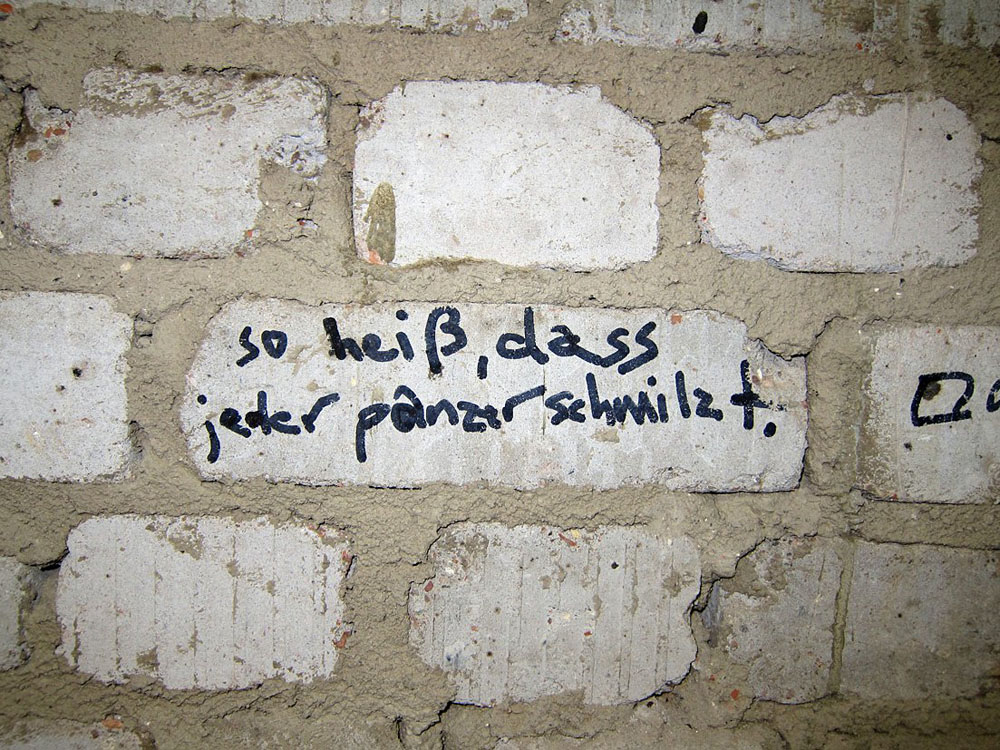 so heiß, dass
jeder panzer schmilzt.